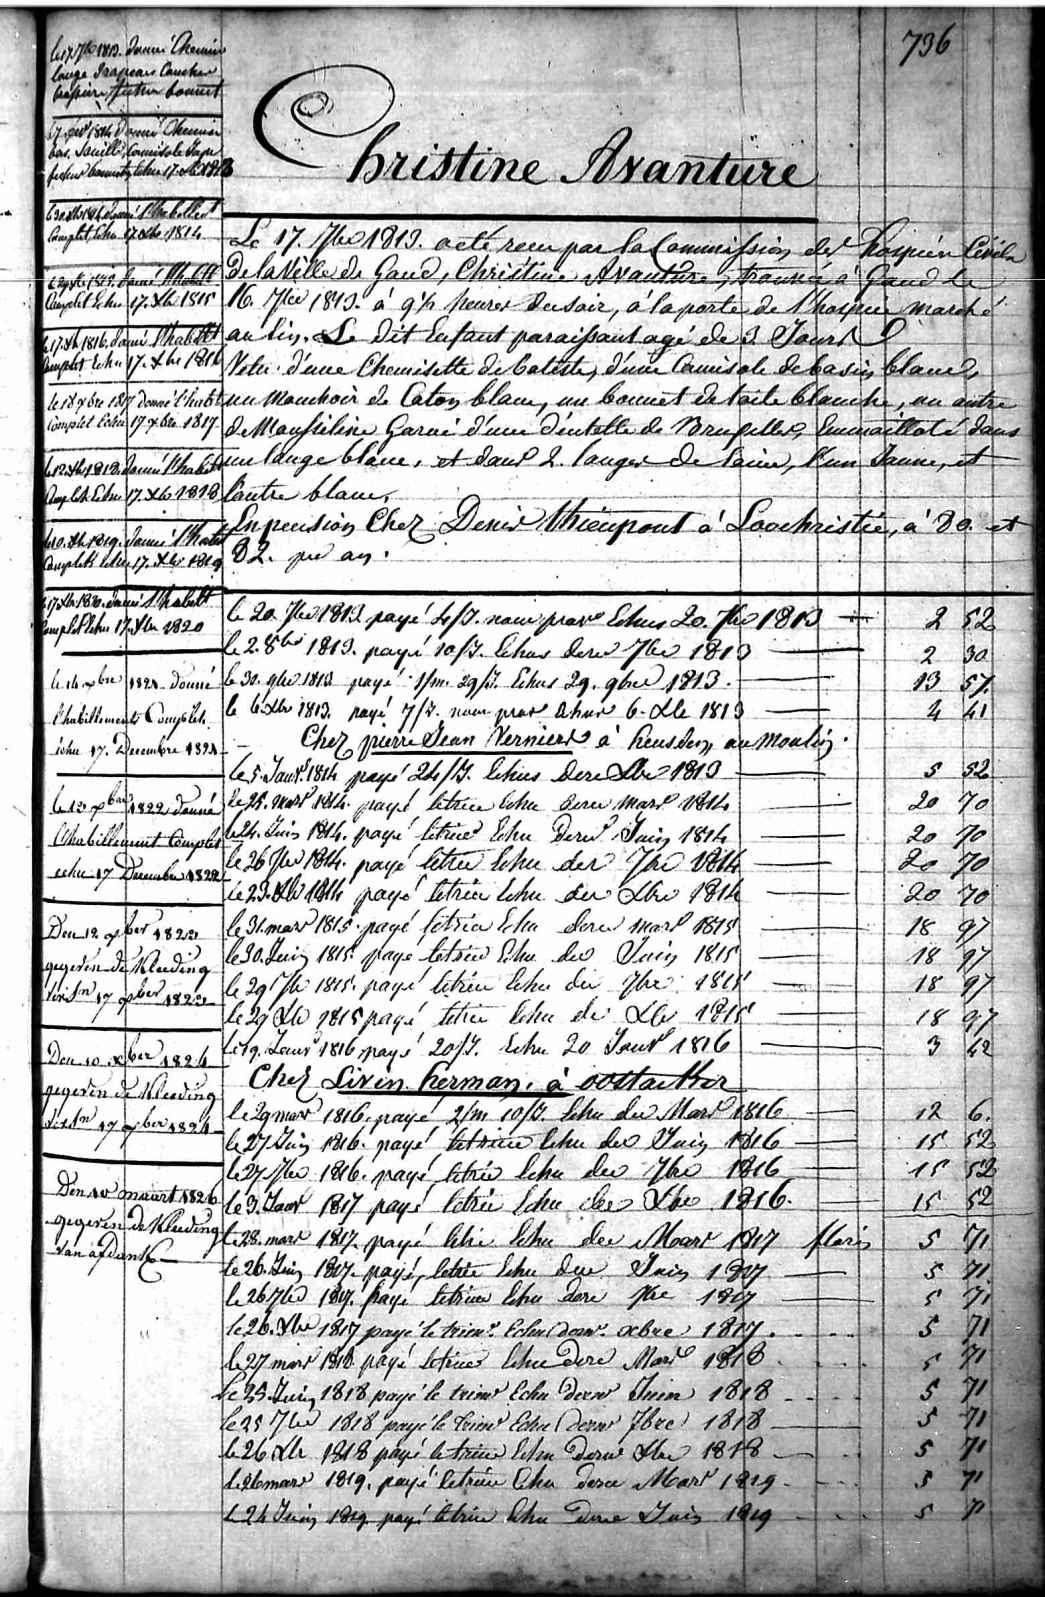 736
le 17 7bre 1813. donné Chemise
lange drapeau Couche
brassiere, fichu bonnet
donné Chemise
bas, Camisole
bonnet, Echu 17. Xbre 1813
donné l'habillemt
Complet, Echu 17 Xbre 1814
donné l'habillt
Complet Echu 17. Xbre 1815
le 17 Xb 1816. donné l'habillt
Complet Echu 17. Xbre 1816
le 18 xbre 1817 donné l'habt
Complet Echu 17 xbre 1817.
le 12 Xb 1818. donné l'habt
Complet Echu 17. Xb 1818
le 10. Xb 1819. donné l'habt
Complet Echu 17. Xbr 1819
le 17 Xbr 1820. donné l'habillt
Complet Echu 17. Xbr 1820
le 14 xbre 1821 donné
l'habillement Complet
échu 17. Decembre 1821
le 13 xbre 1822 donné
l'habillement Complet
echu 17 Decembre 1822
Den 12 xber 1823
gegeven de Kleeding
17 xber 1823
Den 10 xber 1824
gegeven de Kleeding
17 xber 1824
Den 10 maart 1826
gegeven de Kleeding
Christine Avanture
Le 17. 7bre 1813. acte reçu par la Commission des hospices Civils
de la Ville de Gand, Christine Avanture, trouvée à Gand le
16. 7bre 1813. à 9½ heures du soir, à la porte de l'hospice marché
au lin. Le dit Enfant paraissant agé de 3. Jours
Vetu d'une Chemisette de batiste, d'une Camisole de basin blanc,
un mouchoir de Coton blanc, un bonnet de toile blanche, un autre
de Mousseline Garni d'une dentelle de Bruxelles, Emmailloté dans
un lange blanc, et dans 2. langes de laine, l'un Jaune, et
l'autre blanc.
En pension Chez Denis Thienpont à Loochristie, à 80. et
82. par an.
le 20. 7bre 1813. payé 4/J. Echus 20. 7bre 1813 2 52
le 2. 8bre 1813. payé 10/J. Echus dere 7bre 1813 2 30
le 30. 9bre 1813 payé 1/m. 29/J. Echus 29. 9bre 1813. 13 57.
le 6. Xbr 1813. payé 7/J. Echus 6. Xbre 1813 2 41
Chez pierre Jean Verniers à heusden au Moulin.
le 5. Janv. 1814 payé 24/J. Echus dere Xbre 1813 5 52
le 25. mars 1814. payé le trire Echu dere mars 1814 20 70
le 24. Juin 1814. payé le trire Echu dere Juin 1814 20 70
le 26 7bre 1814. payé le trire Echu der 7bre 1814 20 70
le 23. Xbr 1814 payé le trire Echu der Xbre 1814 20 70
le 31. mars 1815. payé le trire Echu dere mars 1815 18 97
le 30. Juin 1815. payé le trire Echu der Juin 1815 18 97
le 29 7bre 1815. payé le trire Echu der 7bre 1815 18 97
le 29 Xbr 1815 payé le trire Echu der Xbr 1815 18 97
le 19. Janvr 1816. payé 20/J. Echu 20 Janvr 1816 3 42
Chez Livin herman, à oostacker
le 29 mars 1816. payé 2/m 10/J. Echu der Mars 1816 12 6.
le 27 Juin 1816. payé le trire Echu der Juin 1816 15 52
le 27 7bre 1816. payé le trire Echu der 7bre 1816 15 52
le 3. Janvr 1817 payé le trire Echu der Xbre 1816. 15 52
le 28. mars 1817. payé le trire Echu der Mars 1817 florins 5 71
le 26. Juin 1817. payé, le trire Echu der Juin 1817 5 71
le 26 7bre 1817. payé le trire Echu dere 7bre 1817 5 71
le 26. Xbre 1817 payé le trimr. Echu dernr. xbre 1817. 5 71
le 27 mars 1818. payé le trire Echu dere Mars 1818 5 71
le 25. Juin 1818 payé le trimr Echu dernr Juin 1818 5 71
le 25 7bre 1818 payé le trimr Echu dernr 7bre 1818 5 71
le 26 Xbr 1818 payé le trire Echu dernr Xbre 1818 5 71
le 26 mars 1819. payé le trire Echu dere Mars 1819 5 71
le 24 Juin 1819. payé le trire Echu dere Juin 1819 5 71